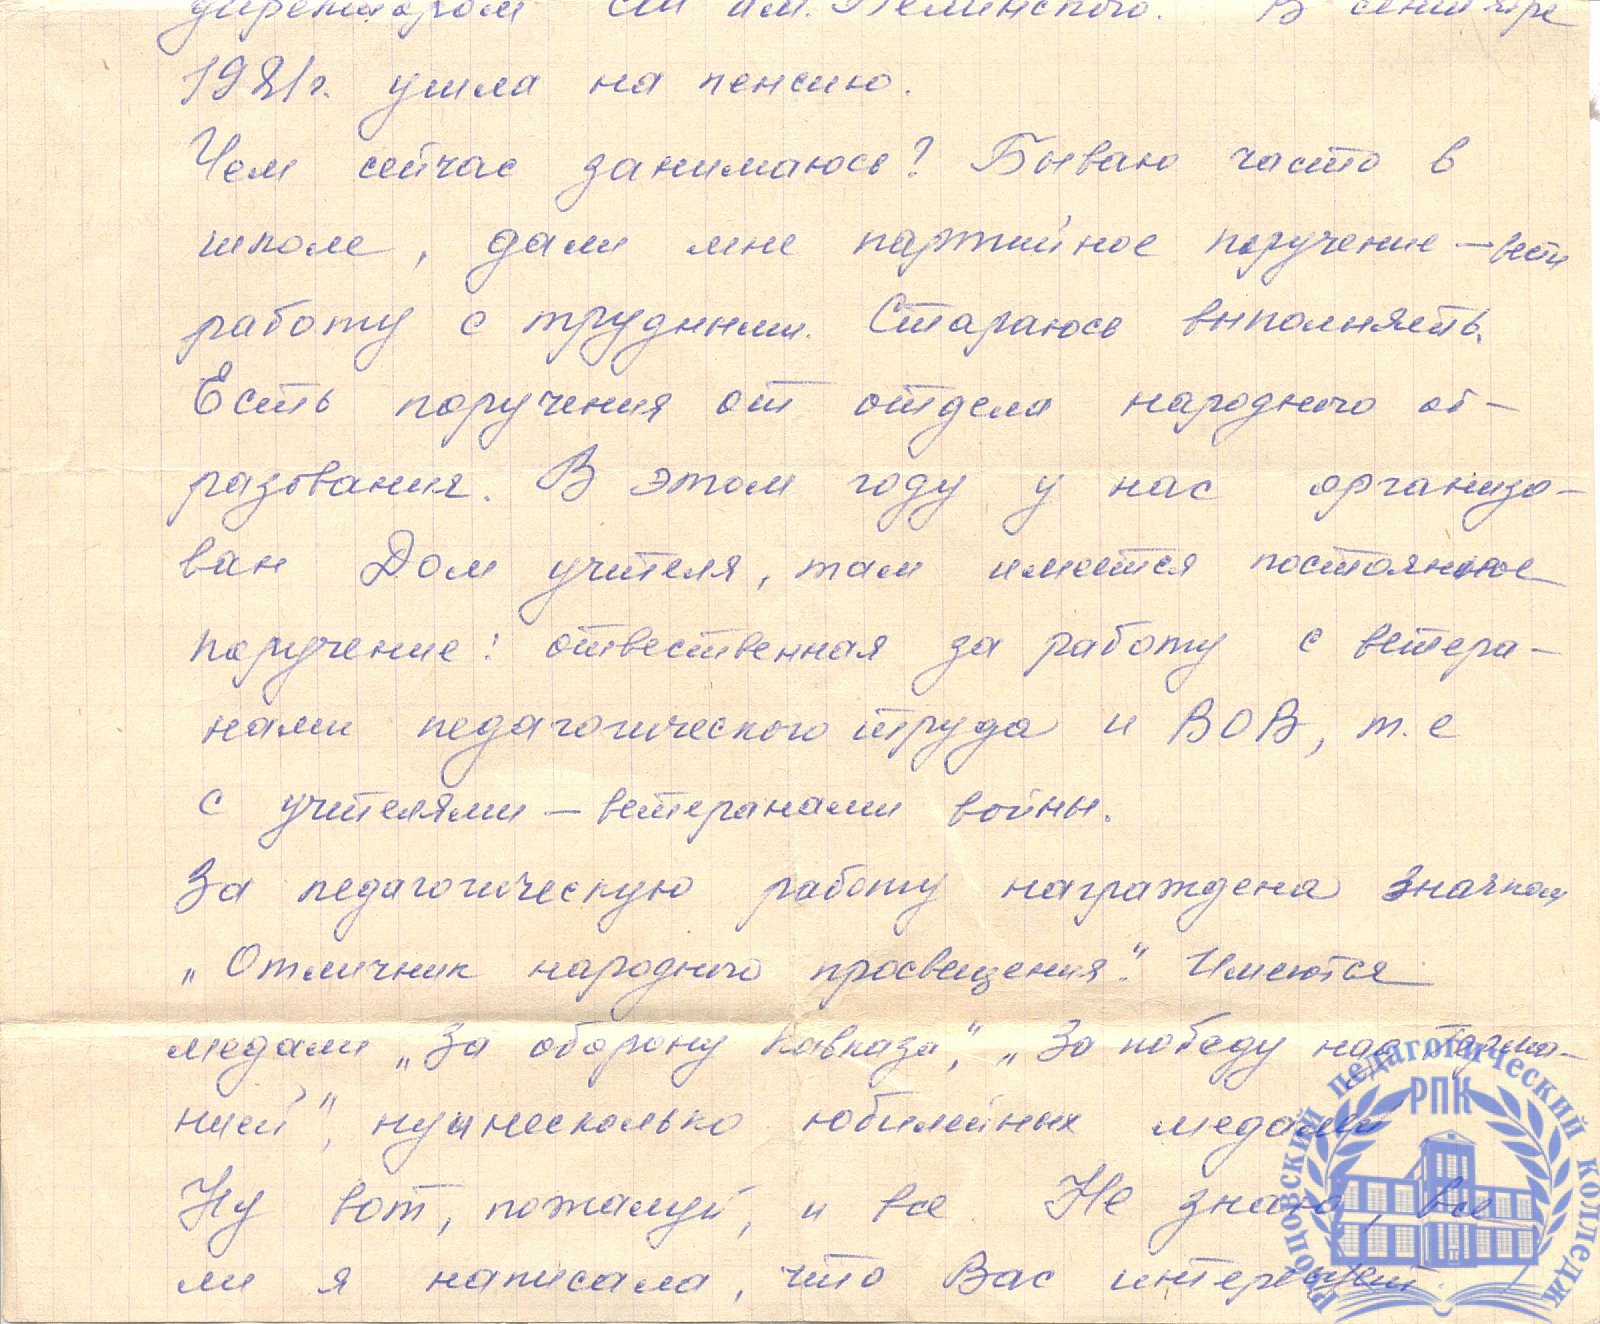 директором СШ им. В сентябре
1981г. ушла на пенсию.
Чем сейчас занимаюсь? Бываю часто в
школе, дали мне партийное поручение – вести
работу с трудными. Стараюсь выполнять.
Есть поручения от отдела народного об-
разования. В этом году у нас организо-
ван Дом учителя, там имеется постоянное
поручение: ответственная за работу с ветера-
нами педагогического труда и ВОВ, т.е
с учителями – ветеранами войны.
За педагогическую работу награждена значком
„Отличник народного просвещения". Имеются
медали „За оборону Кавказа", „За победу над Герма-
нией", ну и несколько юбилейных медалей
Ну вот, пожалуй, и все. Не знаю, все
ли я написала, что Вас интересует.
Рубцовский педагогический колледж
РПК